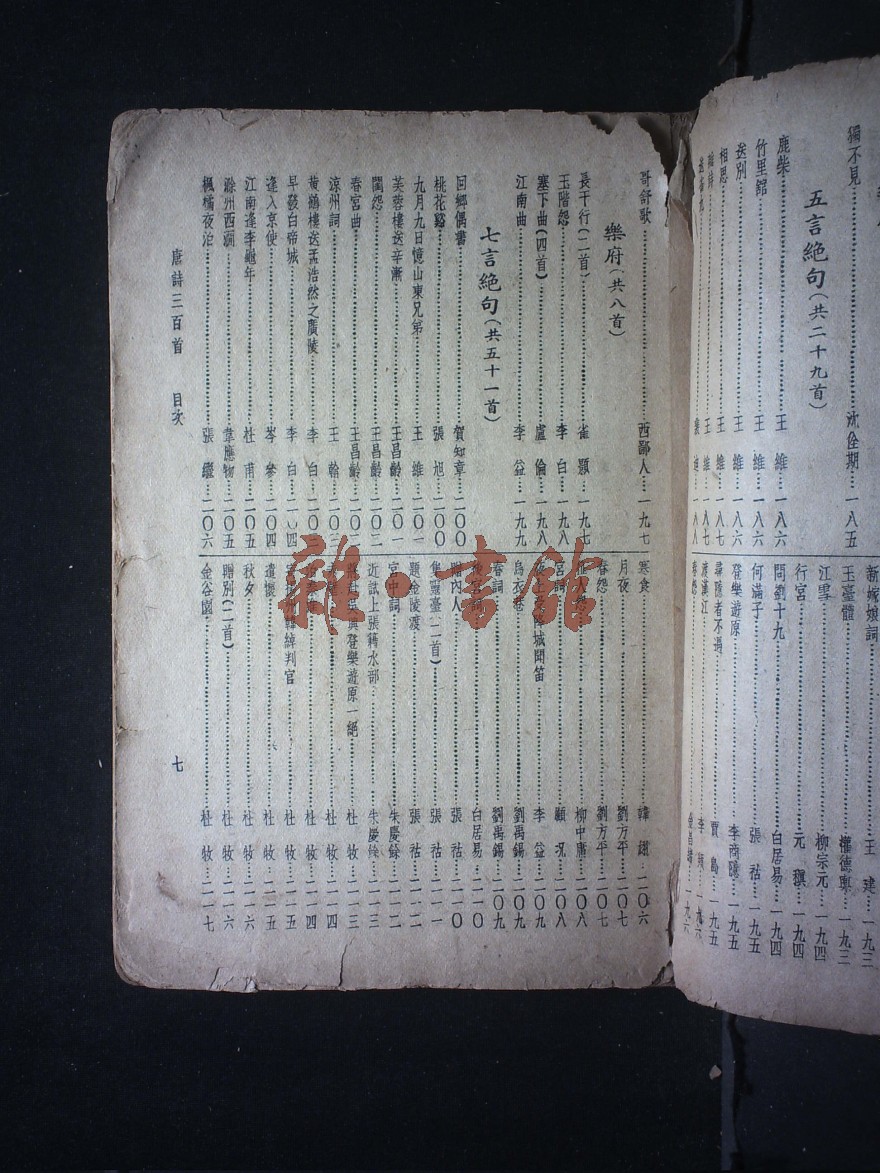 獨不見……沈佺期…一八五
五言絕句(共二十九首)
鹿柴……王　維…一八六
竹里館……王　維…一八六
送別……王　維…一八六
相思……王　維…一八七
王　維…一八七
一八八
新嫁娘詞……王　建…一九三
玉臺體……權德輿…一九三
江雪……柳宗元…一九四
行宮……元　稹…一九四
問劉十九……白居易…一九四
何滿子……張　祜…一九五
登樂遊原……李商隱…一九五
尋隱者不遇……賈　島…一九五
渡漢江……李　頻…一九六
春怨……金昌緒…一九六
哥舒歌……西鄙人…一九七
樂府(共八首)
長干行(二首)……崔　顥…一九七
玉階怨……李　白…一九八
塞下曲(四首)……盧　倫…一九八
江南曲……李　益…一九九
七言絕句(共五十一首)
回鄉偶書……賀知章…二〇〇
桃花谿……張　旭…二〇〇
九月九日憶山東兄弟……王　維…二〇一
芙蓉樓送辛漸……王昌齡…二〇一
閨怨……王昌齡…二〇二
春宮曲……王昌齡…二〇二
涼州詞……王　翰…二〇三
黃鶴樓送孟浩然之廣陵……李　白…二〇三
早發白帝城……李　白…二〇四
逢入京使……岑　參…二〇四
江南逢李龜年……杜　甫…二〇五
滁州西澗……韋應物…二〇五
楓橋夜泊……張　繼…二〇六
寒食……韓　翃…二〇六
月夜……劉方平…二〇七
春怨……劉方平…二〇七
柳中庸…二〇八
宮詞……顧　況…二〇八
城聞笛……李　益…二〇九
烏衣巷……劉禹錫…二〇九
春詞……劉禹錫…二〇九
白居易…二一〇
贈內人……張　祜…二一〇
集靈臺(二首)……張　祜…二一一
題金陵渡……張　祜…二一二
宮中詞……朱慶餘…二一二
近試上張籍水部……朱慶餘…二一三
登樂遊原一絕……杜　牧…二一三
杜　牧…二一四
杜　牧…二一四
韓綽判官……杜　牧…二一五
遣懷……杜　牧…二一五
秋夕……杜　牧…二一六
贈別(二首)……杜　牧…二一六
金谷園……杜　牧…二一七
唐詩三百首　目次
七
雜·書館